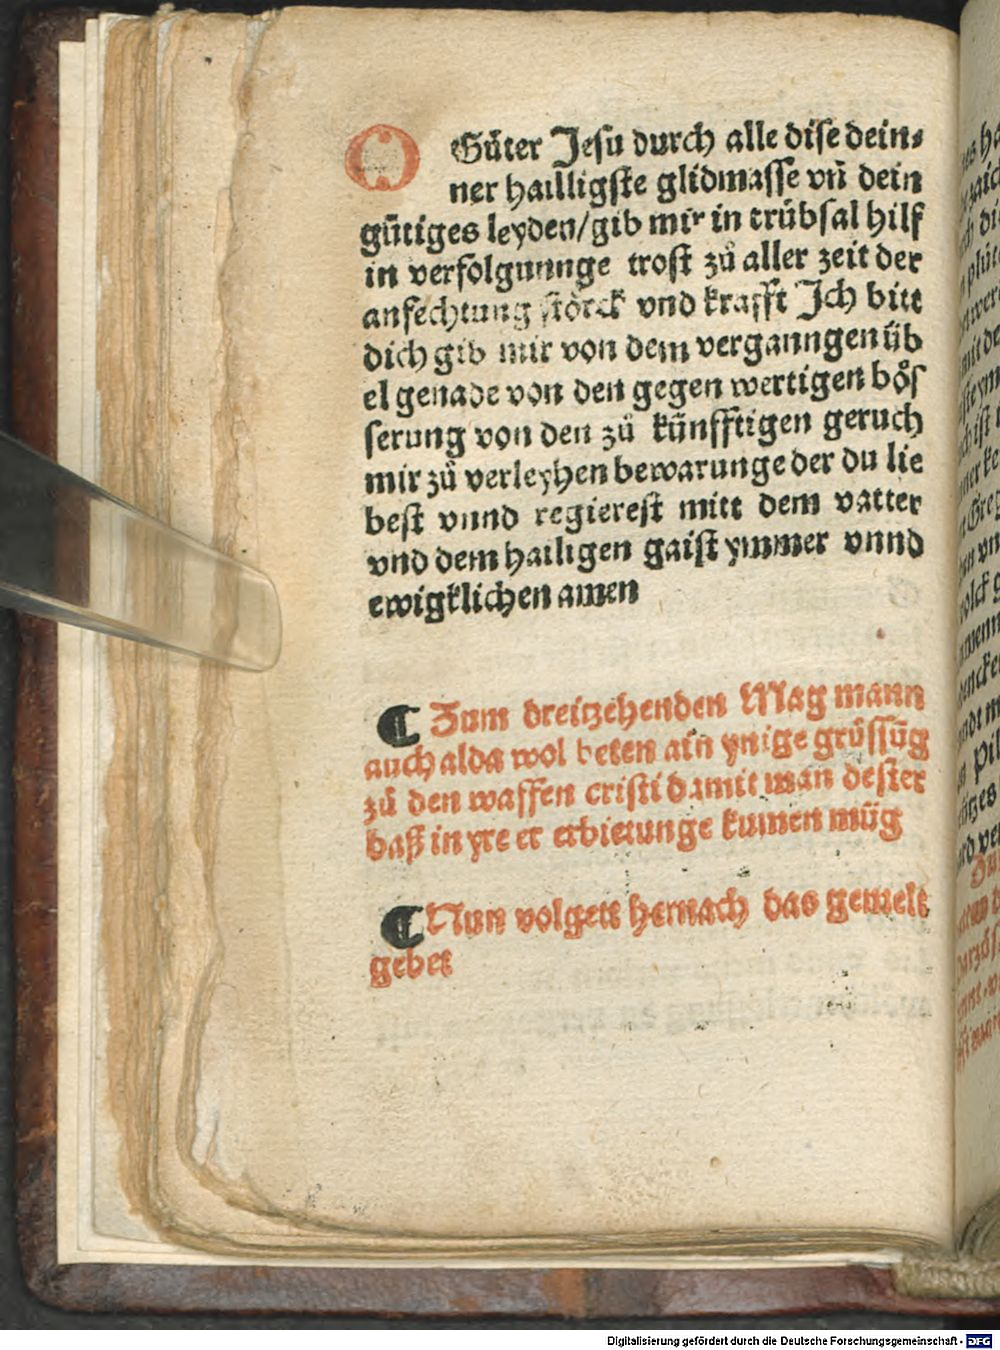 O Gůter Jesu durch alle dise dein⸗
ner hailligste glidmasse vn̄ dein
gütiges leyden/gib mir in trübsal hilf
in verfolgunnge trost zů aller zeit der
anfechtung störck vnd krafft Jch bitt
dich gib mir von dem verganngen üb
el genade von den gegen wertigen bös
serung von den zů künfftigen geruch
mir zů verleyhen bewarunge der du lie
best vnnd regierest mitt dem vatter
vnd dem hailigen gaist ymmer vnnd
ewigklichen amen
¶ Zum dreitzehenden Mag mann
auch alda wol beten ain ynige grüssūg
zů den waffen cristi damit man dester
baß in yre er erbietunge kumen müg
¶ Nun volgett hernach das gemelt
gebet
Digitalisierung gefördert durch die Deutsche Forschungsgemeinschaft - DFG